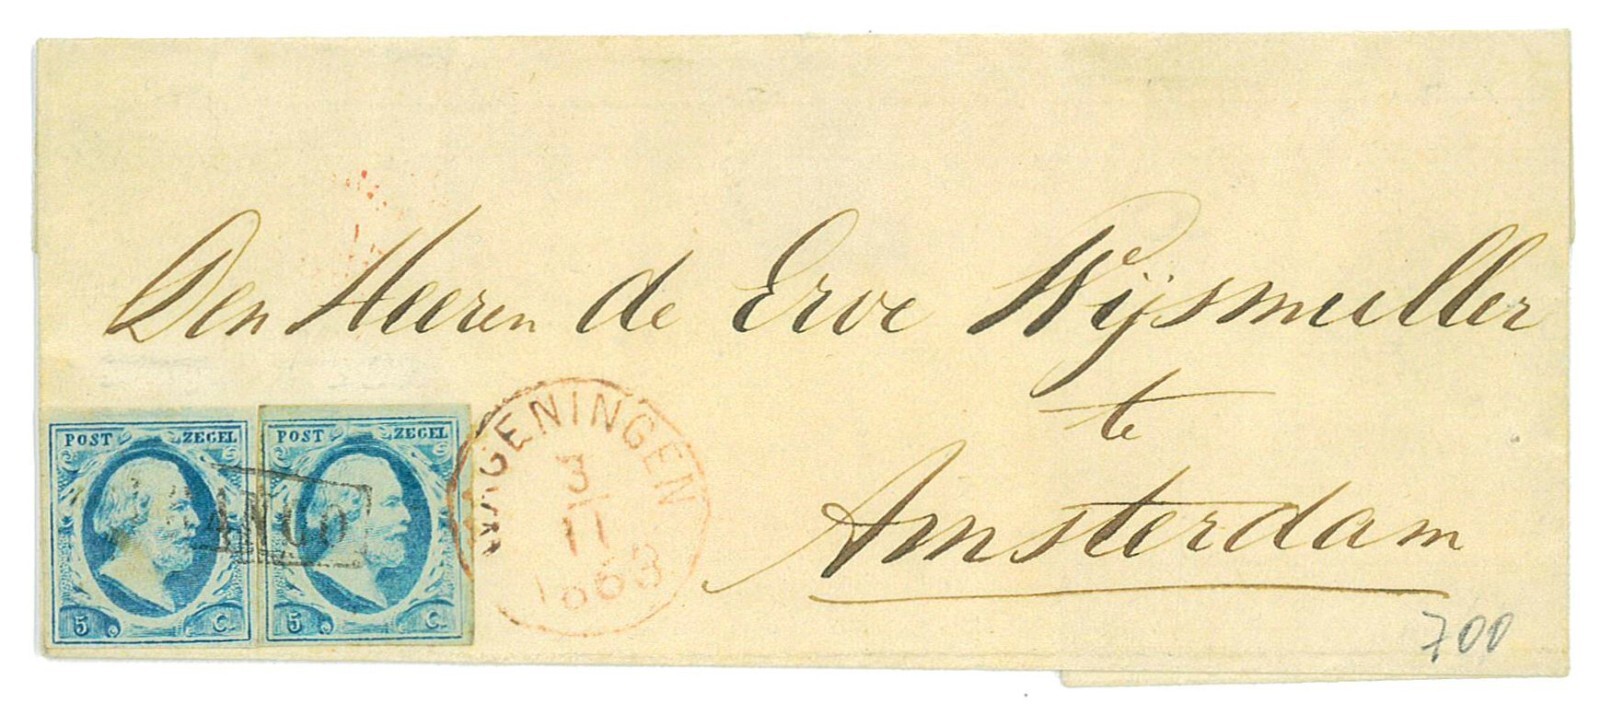 Den Heeren de Erve Wijsmuller
te
Amsterdam
POST ZEGEL POST ZEGEL
FRANCO
5 C. 5 C.
WAGENINGEN
3
11
1863
700